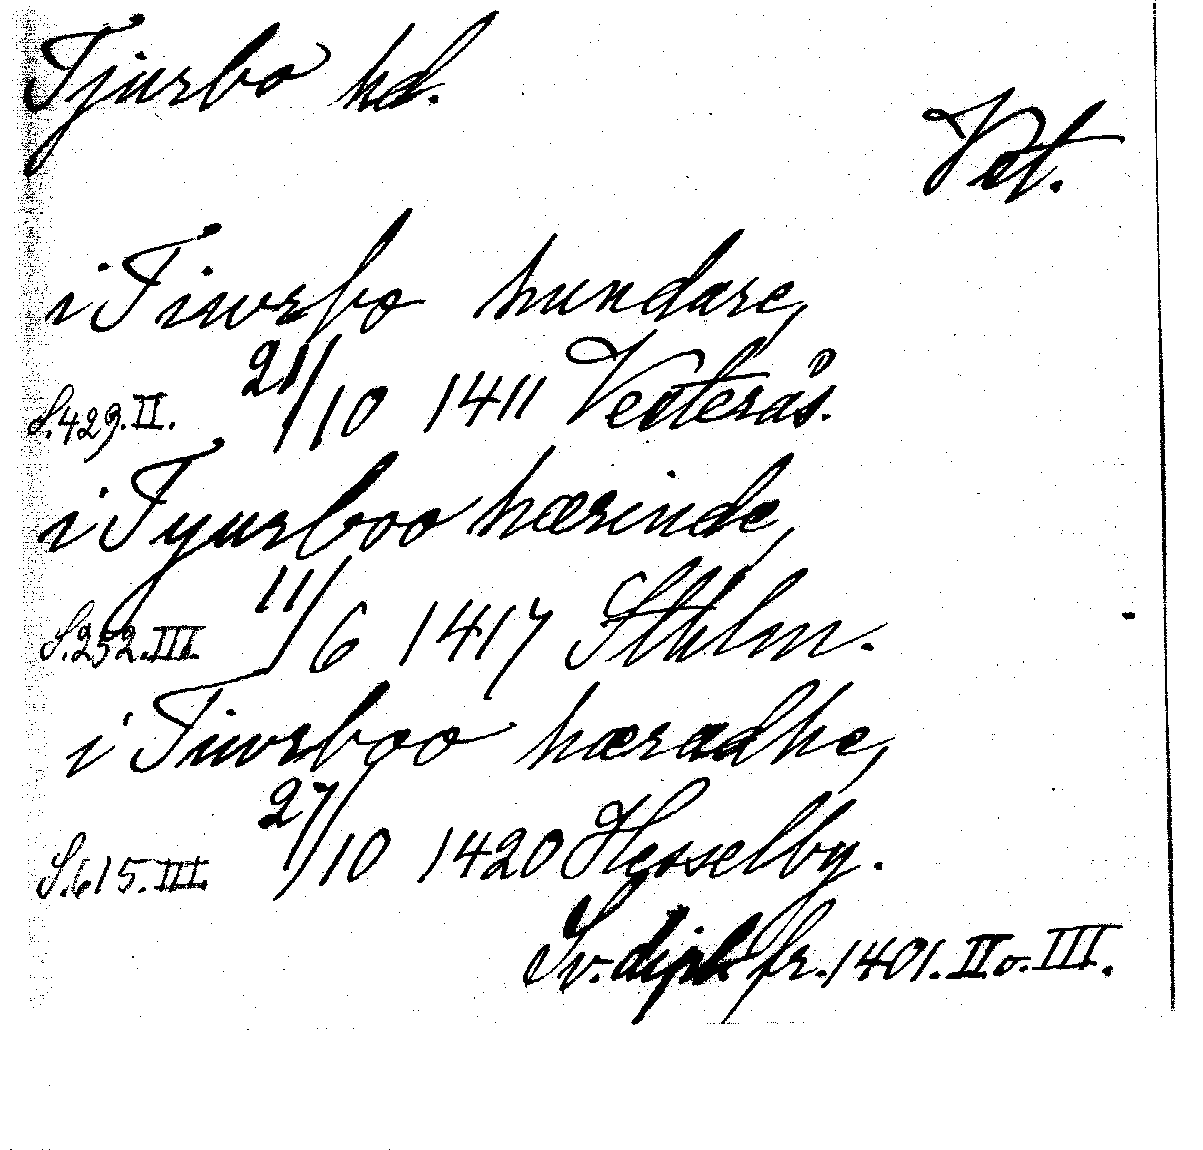 Tjurbo hd.
Vet.
i Tiwrbo hundare,
S. 429. II. 21/10 1411 Vesterås.
i Tyurboo hærinde,
S. 252. III. 11/6 1417 Sthlm.
i Tiwrboo hæradhe,
S. 615. III. 27/10 1420 Hesselby.
Sv. dipl. fr. 1401. II o. III.